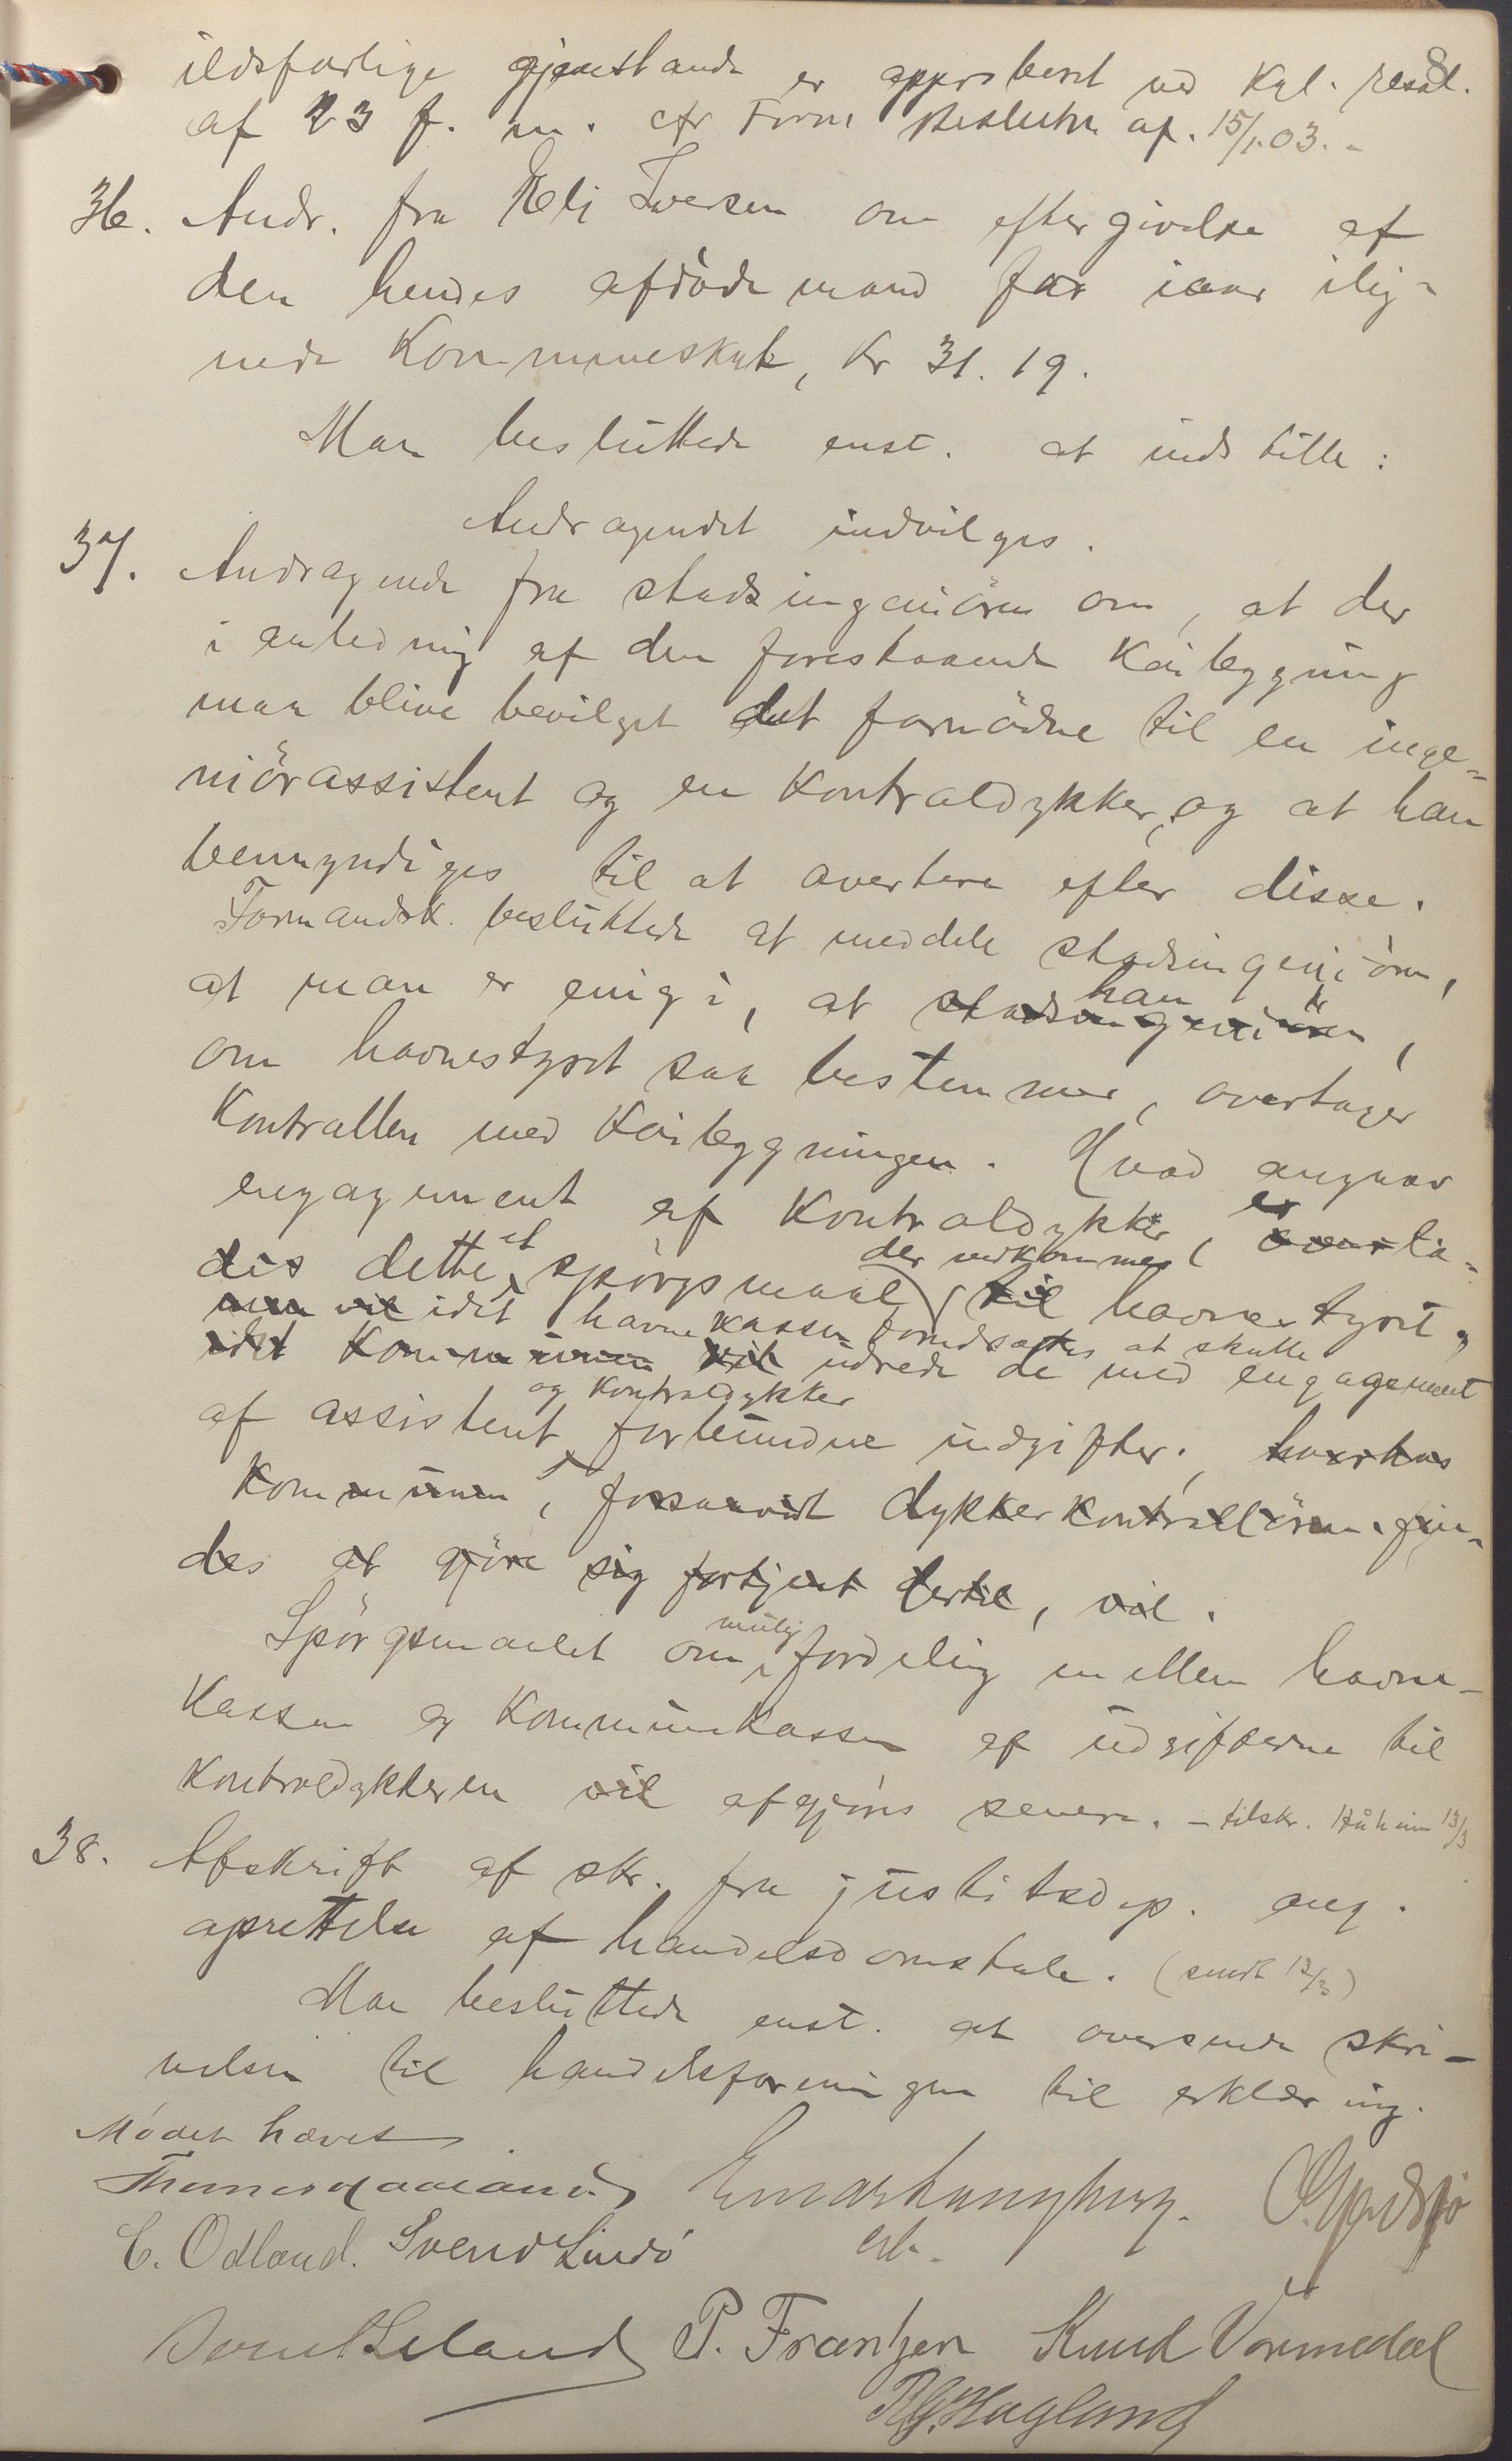 8
ildsfarlige gjenstande er approberet ved Kgl. resol.
af 23 f. m. cfr Form beslutn af. 15/1.03. -
36. Andr. fra Eli Iversen om eftergivelse af
den hendes afdöde mand for iaar ilig-
nede Kommuneskat, Kr 31.19.
Man besluttede enst. at indstille:
Andragendet indvilges.
37. Andragende fra stadsingeniören om, at der
i anledning af den forestaaende Kailegging
maa blive bevilget det fornödne til en inge-
niörassistent og en Kontroldykker, og at han
bemyndiges til at avertere efter disse.
Formandsk. besluttede at meddele stadsingeniören,
at man er enig i, at stadsingeniören han,
om havnestyret saa bestemmer, overtager
Kontrollen med Kailegningen. Hvad angaar
engagement af Kontroldykker, er
des dette et spörgsmaal, der vedkommer til havnestyret,
man vil idet havnekassen forudsættes at skulle
idet Kommunen vil udrede de med engagement
af assistent og Kontroldykker forbundne udgifter.
Kommunen, forsaavidt dykkerkontrollören fin-
des at gjöre sig fortjent dertil, vil.
Spörgsmaalet om mulig fordeling mellem havne-
Kassen og Kommunekassen af udgifterne til
Kontroldykkeren vil afgjöres senere. - tilskr. 13/3
38. Afskrift af skr. fra justitsdep. ang.
oprettelse af handelsdomstole. (sendt 13/3)
Man besluttede enst. at oversende skri-
velsen til handelsforeningen til erklæring.
Mödet hævet
C. Odland. Svend Lindö
P. Frantzen Knud Vormedal
Hagland